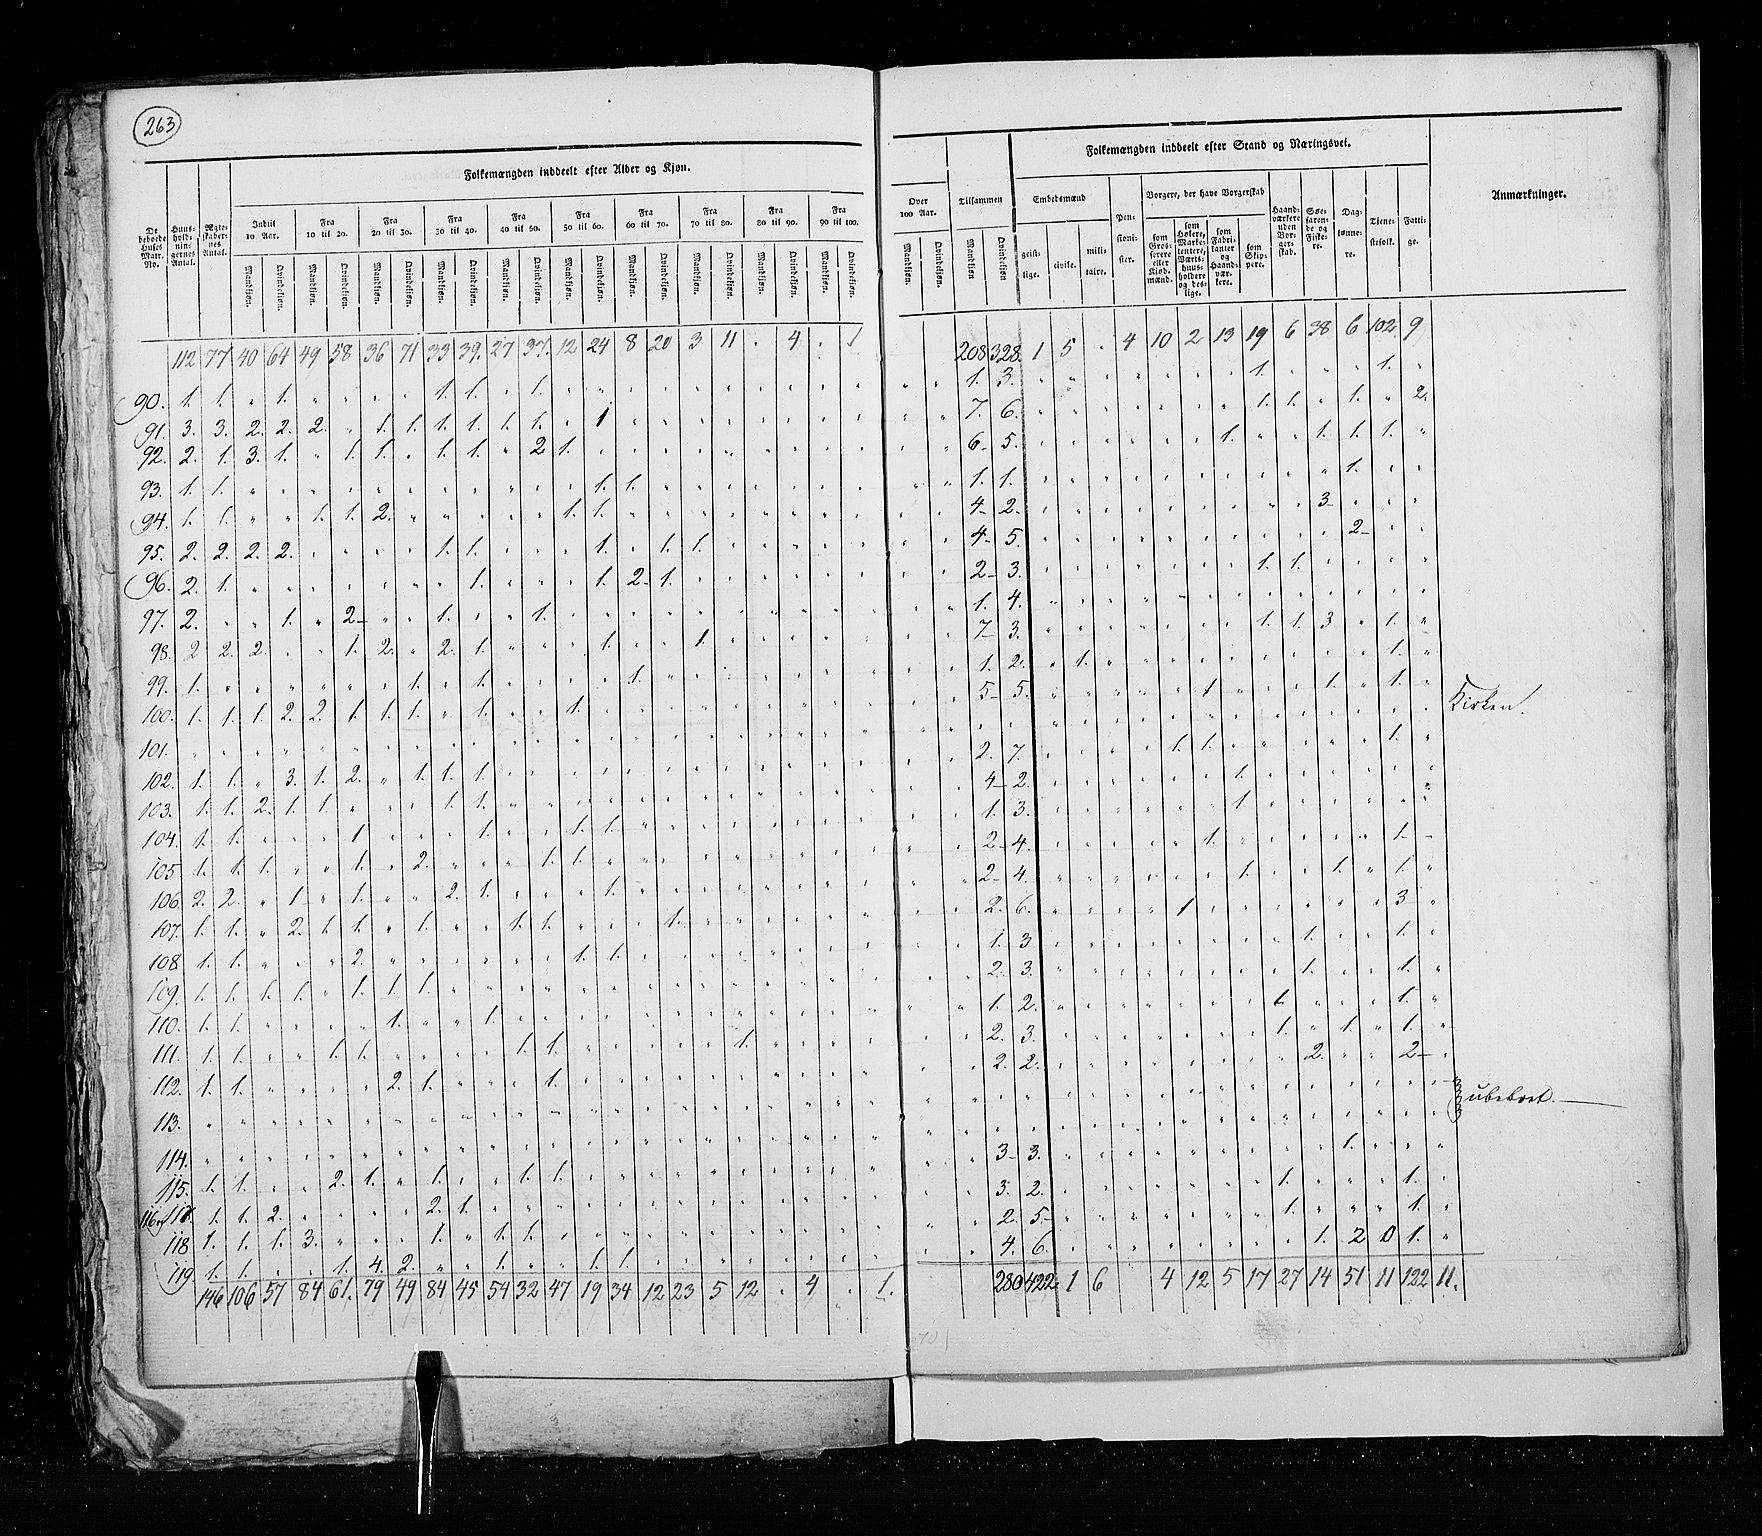 263
Folkemængden inddeelt efter Alder og Kjøn.
De beboede Huses Matr. No.
Huusholdningernes Antal.
Ægteskabernes Antal.
Indtil 10 Aar.
Fra 10 til 20.
Fra 20 til 30.
Fra 30 til 40.
Fra 40 til 50.
Fra 50 til 60.
Fra 60 til 70.
Fra 70 til 80.
Fra 80 til 90.
Fra 90 til 100.
Mandkjøn. Qvindekjøn. Mandkjøn. Qvindekjøn. Mandkjøn. Qvindekjøn. Mandkjøn. Qvindekjøn. Mandkjøn. Qvindekjøn. Mandkjøn. Qvindekjøn. Mandkjøn. Qvindekjøn. Mandkjøn. Qvindekjøn. Mandkjøn. Qvindekjøn. Mandkjøn. Qvindekjøn.
112 77 40 64 49 58 36 71 33 39. 27 37. 12 24 8 20 3 11 . 4 . 1
90. 1. 1. " 1. " " " " 1. 1. " 1.
91. 3. 3. 2. 2. 2. " 1. 1. 1. 1. 1. 1. " 1
92. 2. 1. 3. 1. " 1. 1. " 1. 1. " 2 1.
93. 1. 1. " " " " " " " " " " " 1. 1.
94. 1. 1. " " 1. 1. 2. " " " " " 1. 1.
95. 2. 2. 2. 2. " " " " 1. 1. " " " 1. " 1. 1.
96. 2. 1. " " " " " " " 1. " " " 1. 2 1.
97. 2. " " 1. " 2 " " 1. " " 1.
98. 2 2. 2. " " 1. 2. " 2. 1. " " " 1. " " 1.
99. 1. " " " " " " 1. " 1. " " " " 1.
100. 1. 1. 1. 2. 2. 1. 1. 1. " 1. " " 1.
101.
102. 1. 1. " 3. 1. 2. " 1. 1. 1.
103. 1. 1. 2. 1. 1. " " " 1. 1.
104. 1. 1. " " " 1 " " " 1. " " 1. 1.
105 1. 1. 1. " " 1. " 2. " " " 1. 1.
106. 2. 2. " 1 " 1. " " 2. 1. " " " 1.
107. 1. 1. " 2. 1. 1. " 1. " " 1. 1. " " " 1.
108 1. 1. " " " 2. " " " " " " 1. 1.
109. 1. 1. 1. 1. " 1. 1. 1.
110. 1. 1. " " " " 1. " " 1.
111. 1. 1. " " 1. 1. " " " " 1. 1. " " " " " 1.
112. 1. 1. " " " " 2. 1. " " " 1.
113.
114.
115. 1. 1. " " 2. 1. " 1. " " 1. 1.
116 og 117. 1. 1. 2. " " " " 2. 1.
118 1. 1. 1. 3. " " " 1. " 1. 1.
119. 1. 1. " " 1. 4. 2. " " 1. " " 1. 1.
146 106 57 84 61. 79 49 84 45 54 32 47 19 34 12 23 5 12 . 4 . 1.
Folkemængden inddeelt efter Stand og Næringsvei.
Over 100 Aar.
Mandkjøn. Qvindekjøn.
Tilsammen
Mandkjøn Qvindekjøn
Embedsmænd
geistlige. civile. militaire.
Pensionister.
Borgere, der have Borgerskab
som Grosserere eller Kjøbmænd.
som Høkere, Marketentere, Værtshuusholdere og deslige.
som Fabrikanter og Haandværkere.
som Skippere.
Haandværkere uden Borgerskab.
Søefarende og Fiskere.
Daglønnere.
Tienestefolk.
Fattige.
Anmærkninger.
208 328. 1 5 . 4 10 2 13 19 6 38 6 102 9
1. 3. 1. 1.
7. 6. 1. 1. 1. 2.
6- 5. 1. 1. 1. 1.
1. 1. 1.
4- 2. 3
4- 5. 2
2- 3. 1. 1.
1. 4.
7- 3. 1. 1. 3 1.
1. 2. 1. 1.
5- 5. 1 1. 1.
Kirken.
2. 7. 1. 1. 1.
4- 2. 1.
1. 3. 1
2- 4. 1. 1-
2- 4. 1. 1. 1.
2. 6. 1 3
1. 3 1. 1.
2. 3. 1. 1.
1. 2. 1. 1.
2. 3. 1. 1. 1.
2. 2. 2. 2
ubeboet.
3- 3. 1.
3. 2. 1. 1.
2. 5- 1. 1.
4. 6. 1. 2 0 1.
280 422 1 6 4 12 5 17 27 14 51 11 122 11.